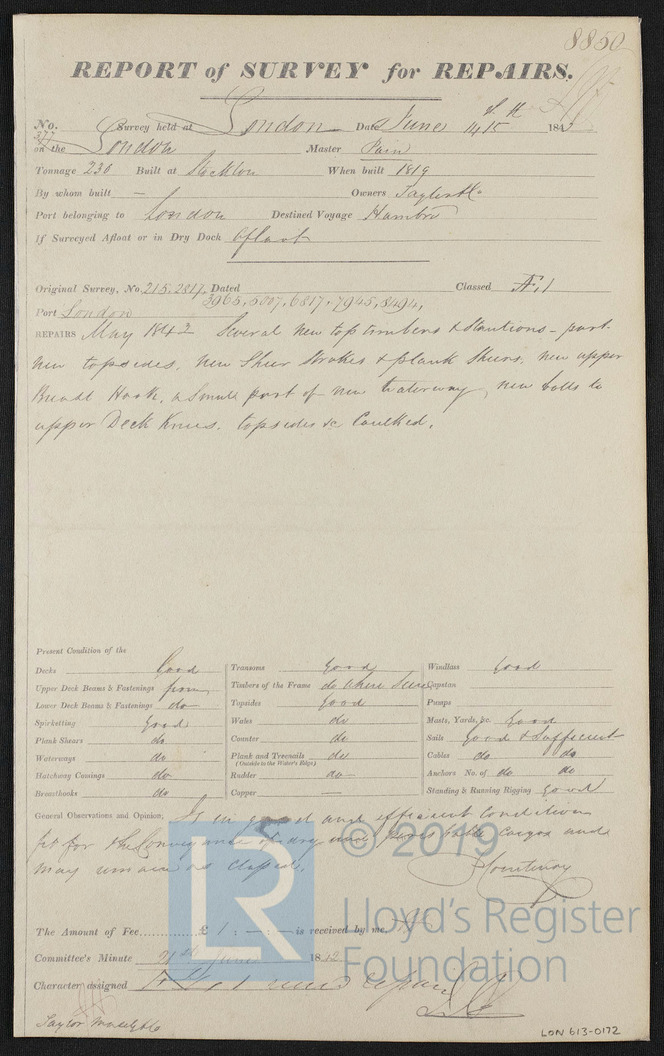 8850
REPORT of SURVEY for REPAIRS.
No. 377 Survey held at London Date June 14, 15th 184
on the London Master Pain
Tonnage 230 Built at Stockton When built 1819
By whom built — Owners Taylor & Co
Port belonging to London Destined Voyage Hambro
If Surveyed Afloat or in Dry Dock Afloat
Original Survey, No. 215, 2817, Dated Classed Æ 1
3965, 5007, 6817, 7945, 8494,
Port London
REPAIRS May 1842 Several new top timbers & Stantions - part
new topsides, new Sheer Strakes & plank Sheers, new upper
Breast Hook, a Small part of new Waterway, new bolts to
upper Deck Knees, topsides &c Caulked.
Present Condition of the
Decks Good
Upper Deck Beams & Fastenings firm
Lower Deck Beams & Fastenings do
Spirketting Good
Plank Shears do
Waterways do
Hatchway Comings do
Breasthooks do
Transoms good
Timbers of the Frame do where seen
Topsides good
Wales do
Counter do
Plank and Treenails do
(Outside to the Water's Edge)
Rudder do
Copper —
Windlass good
Capstan
Pumps
Masts, Yards, &c. good
Sails good & sufficient
Cables do do
Anchors No. of do do
Standing & Running Rigging good
General Observations and Opinion; Is in good and efficient Condition
fit for the Conveyance of dry and perishable Cargos and
may remain as Classed.
Courtenay
The Amount of Fee............£ 1 : — : — is received by me
Committee's Minute 21st June 1842
Character assigned
Taylor
LON 613-0172
LR
© 2019
Lloyd's Register
Foundation